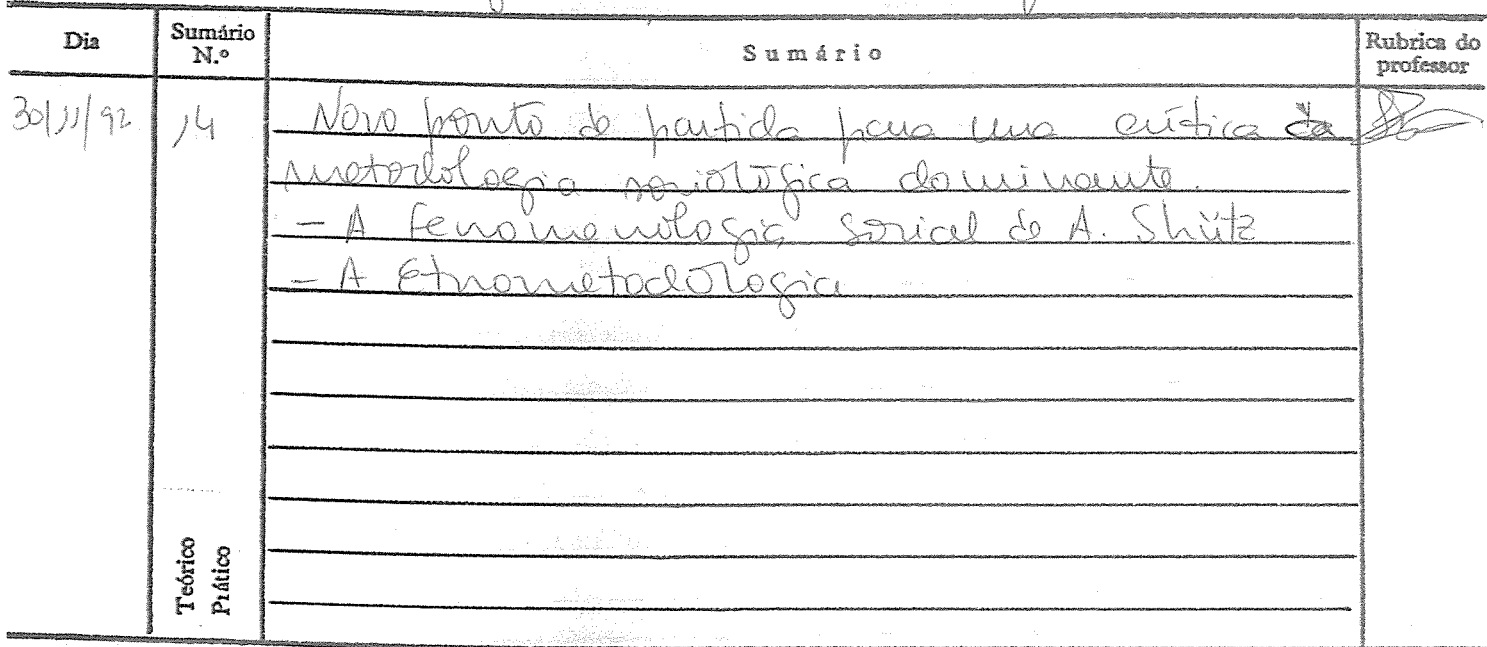 Dia Sumário N.º Sumário Rubrica do professor
30/11/92 14 Novo ponto de partida para uma crítica da
metodologia sociológica dominante.
- A fenomenologia social de A. Shütz
- A Etnometodologia
Teórico
Prático